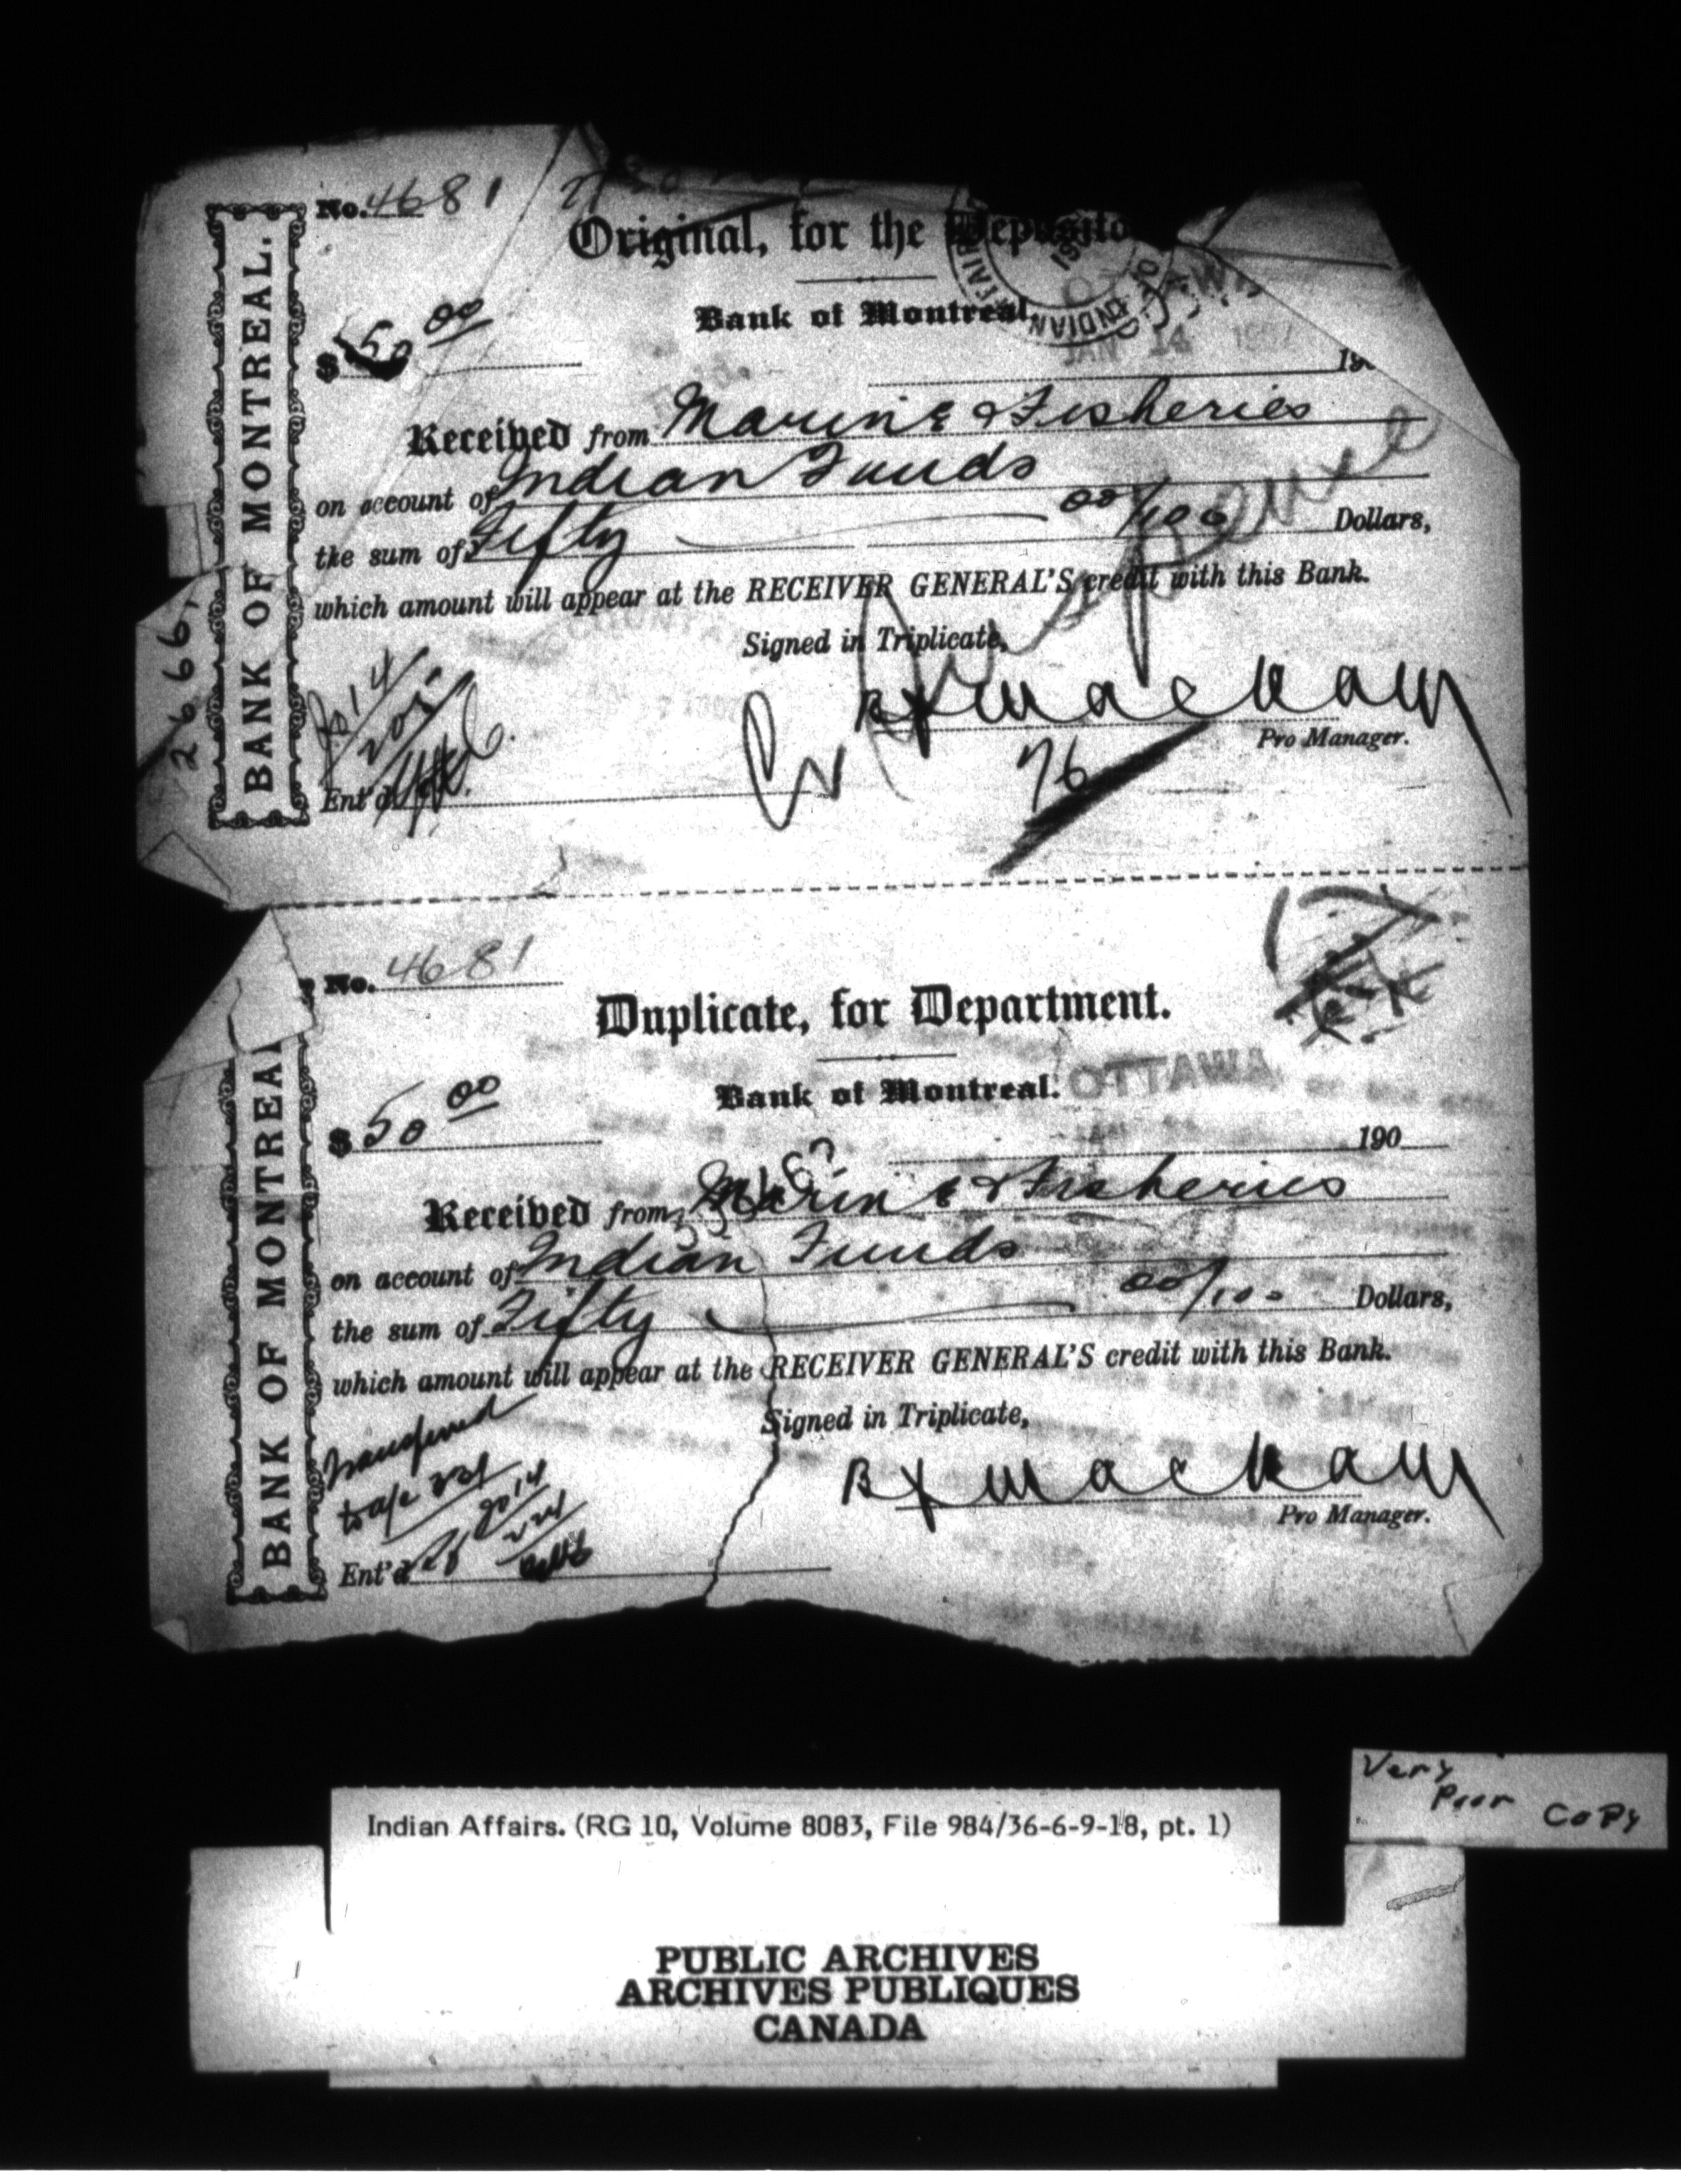 No. 4681
Original, for the Deposito
BANK OF MONTREAL.
Bank of Montreal.
INDIAN
OTTAWA
JAN 14
$50 00
190
Received from Marine & Fisheries
on account of Indian Funds
the sum of Fifty 00/100 Dollars,
which amount will appear at the RECEIVER GENERAL'S credit with this Bank.
Signed in Triplicate,
Pro Manager.
76
Ent'd
No. 4681
Duplicate, for Department.
BANK OF MONTREAL
Bank of Montreal.
OTTAWA
$50 00
190
Received from Marine & Fisheries
on account of Indian Funds
the sum of Fifty 00/100 Dollars,
which amount will appear at the RECEIVER GENERAL'S credit with this Bank.
Signed in Triplicate,
Transferred
to a/c
Pro Manager.
Ent'd
Very
Poor Copy
Indian Affairs. (RG 10, Volume 8083, File 984/36-6-9-18, pt. 1)
PUBLIC ARCHIVES
ARCHIVES PUBLIQUES
CANADA